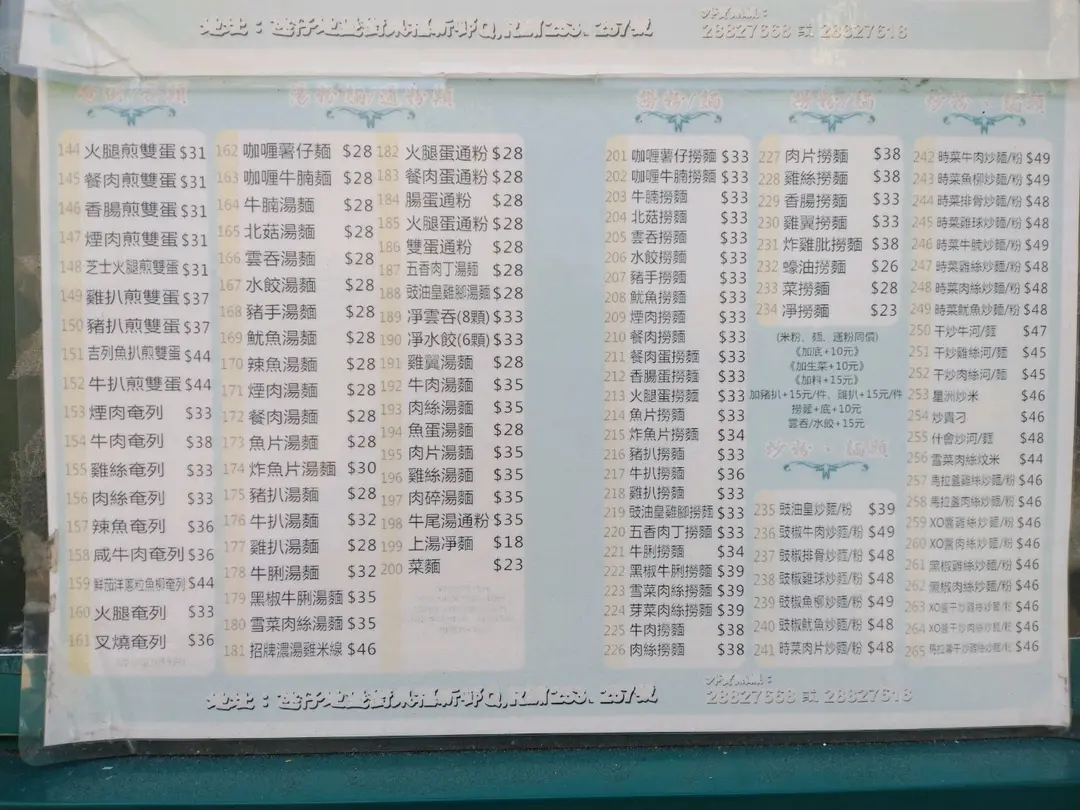 28827668 或 28827618
144 火腿煎雙蛋 $31
145 餐肉煎雙蛋 $31
146 香腸煎雙蛋 $31
147 煙肉煎雙蛋 $31
148 芝士火腿煎雙蛋 $31
149 雞扒煎雙蛋 $37
150 豬扒煎雙蛋 $37
151 吉列魚扒煎雙蛋 $44
152 牛扒煎雙蛋 $44
153 煙肉奄列 $33
154 牛肉奄列 $38
155 雞絲奄列 $33
156 肉絲奄列 $33
157 辣魚奄列 $36
158 咸牛肉奄列 $36
159 鮮茄洋蔥粒魚柳奄列 $44
160 火腿奄列 $33
161 叉燒奄列 $36
162 咖喱薯仔麵 $28
163 咖喱牛腩麵 $28
164 牛腩湯麵 $28
165 北菇湯麵 $28
166 雲吞湯麵 $28
167 水餃湯麵 $28
168 豬手湯麵 $28
169 魷魚湯麵 $28
170 辣魚湯麵 $28
171 煙肉湯麵 $28
172 餐肉湯麵 $28
173 魚片湯麵 $28
174 炸魚片湯麵 $30
175 豬扒湯麵 $28
176 牛扒湯麵 $32
177 雞扒湯麵 $28
178 牛脷湯麵 $32
179 黑椒牛脷湯麵 $35
180 雪菜肉絲湯麵 $35
181 招牌濃湯雞米線 $46
182 火腿蛋通粉 $28
183 餐肉蛋通粉 $28
184 腸蛋通粉 $28
185 火腿蛋通粉 $28
186 雙蛋通粉 $28
187 五香肉丁湯麵 $28
188 豉油皇雞腳湯麵 $28
189 凈雲吞(8顆) $33
190 凈水餃(6顆) $33
191 雞翼湯麵 $28
192 牛肉湯麵 $35
193 肉絲湯麵 $35
194 魚蛋湯麵 $28
195 肉片湯麵 $35
196 雞絲湯麵 $35
197 肉碎湯麵 $35
198 牛尾湯通粉 $35
199 上湯凈麵 $18
200 菜麵 $23
201 咖喱薯仔撈麵 $33
202 咖喱牛腩撈麵 $33
203 牛腩撈麵 $33
204 北菇撈麵 $33
205 雲吞撈麵 $33
206 水餃撈麵 $33
207 豬手撈麵 $33
208 魷魚撈麵 $33
209 煙肉撈麵 $33
210 餐肉撈麵 $33
211 餐肉蛋撈麵 $33
212 香腸蛋撈麵 $33
213 火腿蛋撈麵 $33
214 魚片撈麵 $33
215 炸魚片撈麵 $34
216 豬扒撈麵 $33
217 牛扒撈麵 $36
218 雞扒撈麵 $33
219 豉油皇雞腳撈麵 $33
220 五香肉丁撈麵 $33
221 牛脷撈麵 $34
222 黑椒牛脷撈麵 $39
223 雪菜肉絲撈麵 $39
224 芽菜肉絲撈麵 $39
225 牛肉撈麵 $38
226 肉絲撈麵 $38
227 肉片撈麵 $38
228 雞絲撈麵 $38
229 香腸撈麵 $33
230 雞翼撈麵 $33
231 炸雞肶撈麵 $38
232 蠔油撈麵 $26
233 菜撈麵 $28
234 凈撈麵 $23
(米粉、麵、通粉同價)
《加底+10元》
《加生菜+10元》
《加料+15元》
加豬扒+15元/件、雞扒+15元/件
撈麵+底+10元
雲吞/水餃+15元
炒粉·麵類
235 豉油皇炒麵/粉 $39
236 豉椒牛肉炒麵/粉 $49
237 豉椒排骨炒麵/粉 $48
238 豉椒雞球炒麵/粉 $48
239 豉椒魚柳炒麵/粉 $49
240 豉椒魷魚炒麵/粉 $48
241 時菜肉片炒麵/粉 $48
242 時菜牛肉炒麵/粉 $49
243 時菜魚柳炒麵/粉 $49
244 時菜排骨炒麵/粉 $48
245 時菜雞球炒麵/粉 $48
246 時菜牛腩炒麵/粉 $49
247 時菜雞絲炒麵/粉 $48
248 時菜肉絲炒麵/粉 $48
249 時菜魷魚炒麵/粉 $48
250 干炒牛河/麵 $47
251 干炒雞絲河/麵 $45
252 干炒肉絲河/麵 $45
253 星洲炒米 $46
254 炒貴刁 $46
255 什會炒河/麵 $48
256 雪菜肉絲炆米 $44
257 馬拉盞雞絲炒麵/粉 $46
258 馬拉盞肉絲炒麵/粉 $46
259 XO醬雞絲炒麵/粉 $46
260 XO醬肉絲炒麵/粉 $46
261 黑椒雞絲炒麵/粉 $46
262 黑椒肉絲炒麵/粉 $46
263 XO醬干炒雞絲炒麵/粉 $46
264 XO醬干炒肉絲炒麵/粉 $46
265 馬拉盞干炒雞絲炒麵/粉 $46
28827668 或 28827618